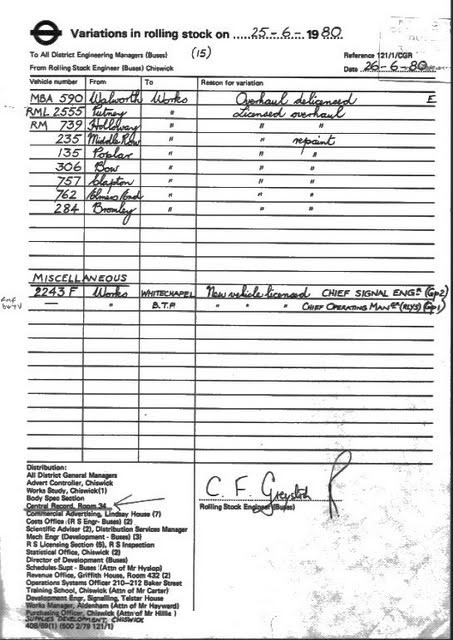 Variations in rolling stock on 25-6-1980
To All District Engineering Managers (Buses) (15) Reference 121/1/CGR
From Rolling Stock Engineer (Buses) Chiswick Date 26-6-80
Vehicle number From To Reason for variation
MBA 590 Walworth Works Overhaul delicensed E
RML 2555 Putney " Licensed overhaul
RM 739 Holloway " " "
235 Middle Row " " repaint
135 Poplar " " "
306 Bow " " "
757 Clapton " " "
762 Elmers End " " "
284 Bromley " " "
MISCELLANEOUS
2243 F Works WHITECHAPEL New vehicle licensed CHIEF SIGNAL ENGR (Gp2)
— " B.T.P. " " " CHIEF OPERATING MANGR (RLYS) (Gp1)
Distribution:
All District General Managers
Advert Controller, Chiswick
Works Study, Chiswick(1)
Body Spec Section
Central Record, Room 34
Commercial Advertising, Lindsay House (7)
Costs Office (R S Engr- Buses) (2)
Scientific Adviser (2), Distribution Services Manager
Mech Engr (Development - Buses) (3)
R S Licensing Section (5), R S Inspection
Statistical Office, Chiswick (2)
Director of Development (Buses)
Schedules Supt - Buses (Attn of Mr Hyslop)
Revenue Office, Griffith House, Room 432 (2)
Operations Systems Officer 210-212 Baker Street
Training School, Chiswick (Attn of Mr Carter)
Development Engr, Signalling, Telstar House
Works Manager, Aldenham (Attn of Mr Hayward)
Purchasing Officer, Chiswick (Attn of Mr Hillie)
SUPPLIES DEVELOPMENT, CHISWICK
406/69(1) (500 2/79 121/1)
C. F. Greyston
Rolling Stock Engineer (Buses)